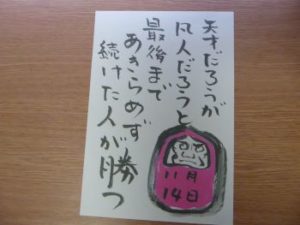 天才だろうが
凡人だろうと
最後まで
あきらめず
続けた人が勝つ
11月
14日